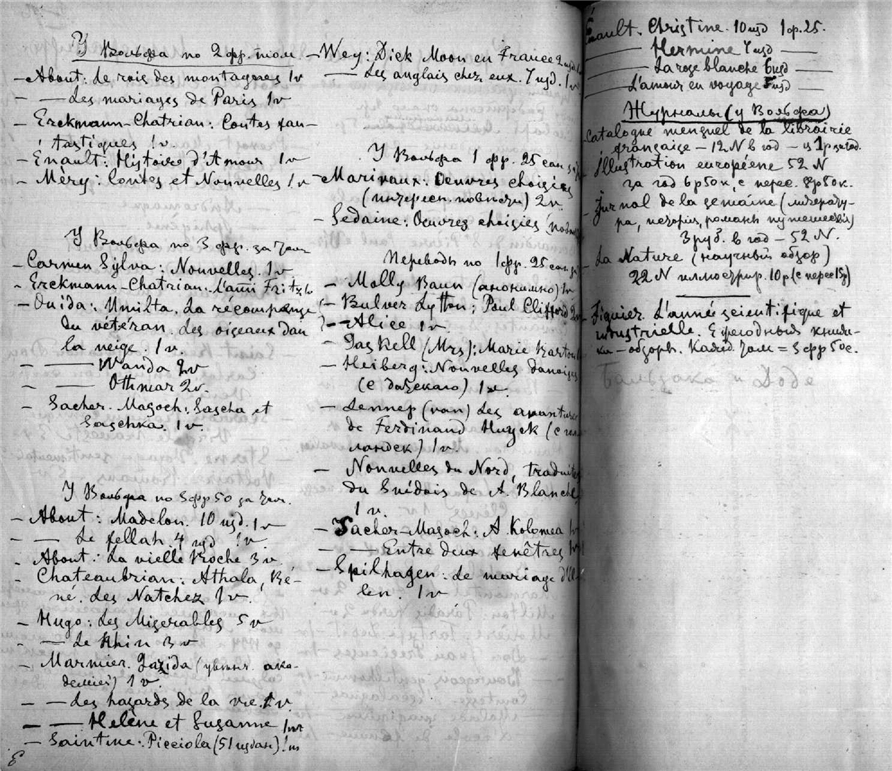 У Вольфа по 2 фр. том
– About: Le rois des montagnes 1v
– — Les mariages de Paris 1v
– Erckmann-Chatrian: Contes fan-
tastiques 1v.
– Enault: Histoire d'Amour 1v
– Méry: Contes et Nouvelles 1v
У Вольфа по 3 фр. за том
– Carmen Sylva: Nouvelles. 1v
– Erckmann-Chatrian: L'ami Fritz 1v
– Ouida: Umilta. La récompense
du vétéran. des oiseaux dans
la neige. 1v.
– — Wanda 2v
– — Othmar 2v.
– Sacher-Masoch: Sascha et
Saschka. 1v.
У Вольфа по 3 фр 50 за том.
– About: Madelon. 10 изд. 1v
– — Le fellah. 4 изд 1v
– About: La vielle Roche 3v
– Chateaubrian: Athala, Ré-
né. Les Natchez 1v.
– Hugo: Les Miserables 5v
– — Le Rhin 3v
– Marmier. Gazida (увенч. ака-
демией) 1v.
– — Les hazards de la vie. 1v.
– — Helène et Suzanne 1v
– Saintine: Picciola (51 издан) 1v
– Wey: Dick Moon en France 2 изд
— Les anglais chez eux. 7 изд. 1v
У Вольфа 1 фр. 25 сан
– Marivaux: Oeuvres choisies
(интересн. повести) 2v.
– Sedaine: Oeuvres choisies
Переводы по 1 фр. 25 сан
– Molly Baun (анонимно) 1v
– Bulver Lytton; Paul Clifford
– — Alice 1v.
– Gaskell (Mrs): Marie Barton
– Heiberg: Nouvelles danoises
(с датского) 1v.
– Lennep (van) Les avantures
de Ferdinand Huyck (с гол-
ландск) 1v.
– Nouvelles du Nord, traduites
du Suédois de A. Blanche,
1v.
– Sacher-Masoch: A Kolomea 1v
– — Entre deux fenêtres
– Spilhagen: Le mariage d'El-
len. 1v
Enault. Christine. 10 изд 1 фр. 25.
— Hermine 7 изд —
— La roze blanche 6 изд —
— L'amour en voyage 5 изд —
Журналы (у Вольфа)
Catalogue mensuel de la librairie
française – 12 N в год – 1 р за год.
Illustration européene 52 N
за год 6 р 50к, с перес. 8р 50к.
Jurnal de la semaine (литерату-
ра, история, романы путешествия)
3 руб. в год – 52 N.
La Nature (научный обзор)
22 N иллюстрир. 10 р (с перес 15р)
Figuier. L'année scientifique et
industrielle. Ежегодные книж-
ки – обзоры. Кажд. том = 3 фр 50с.
Бальзака и Доде